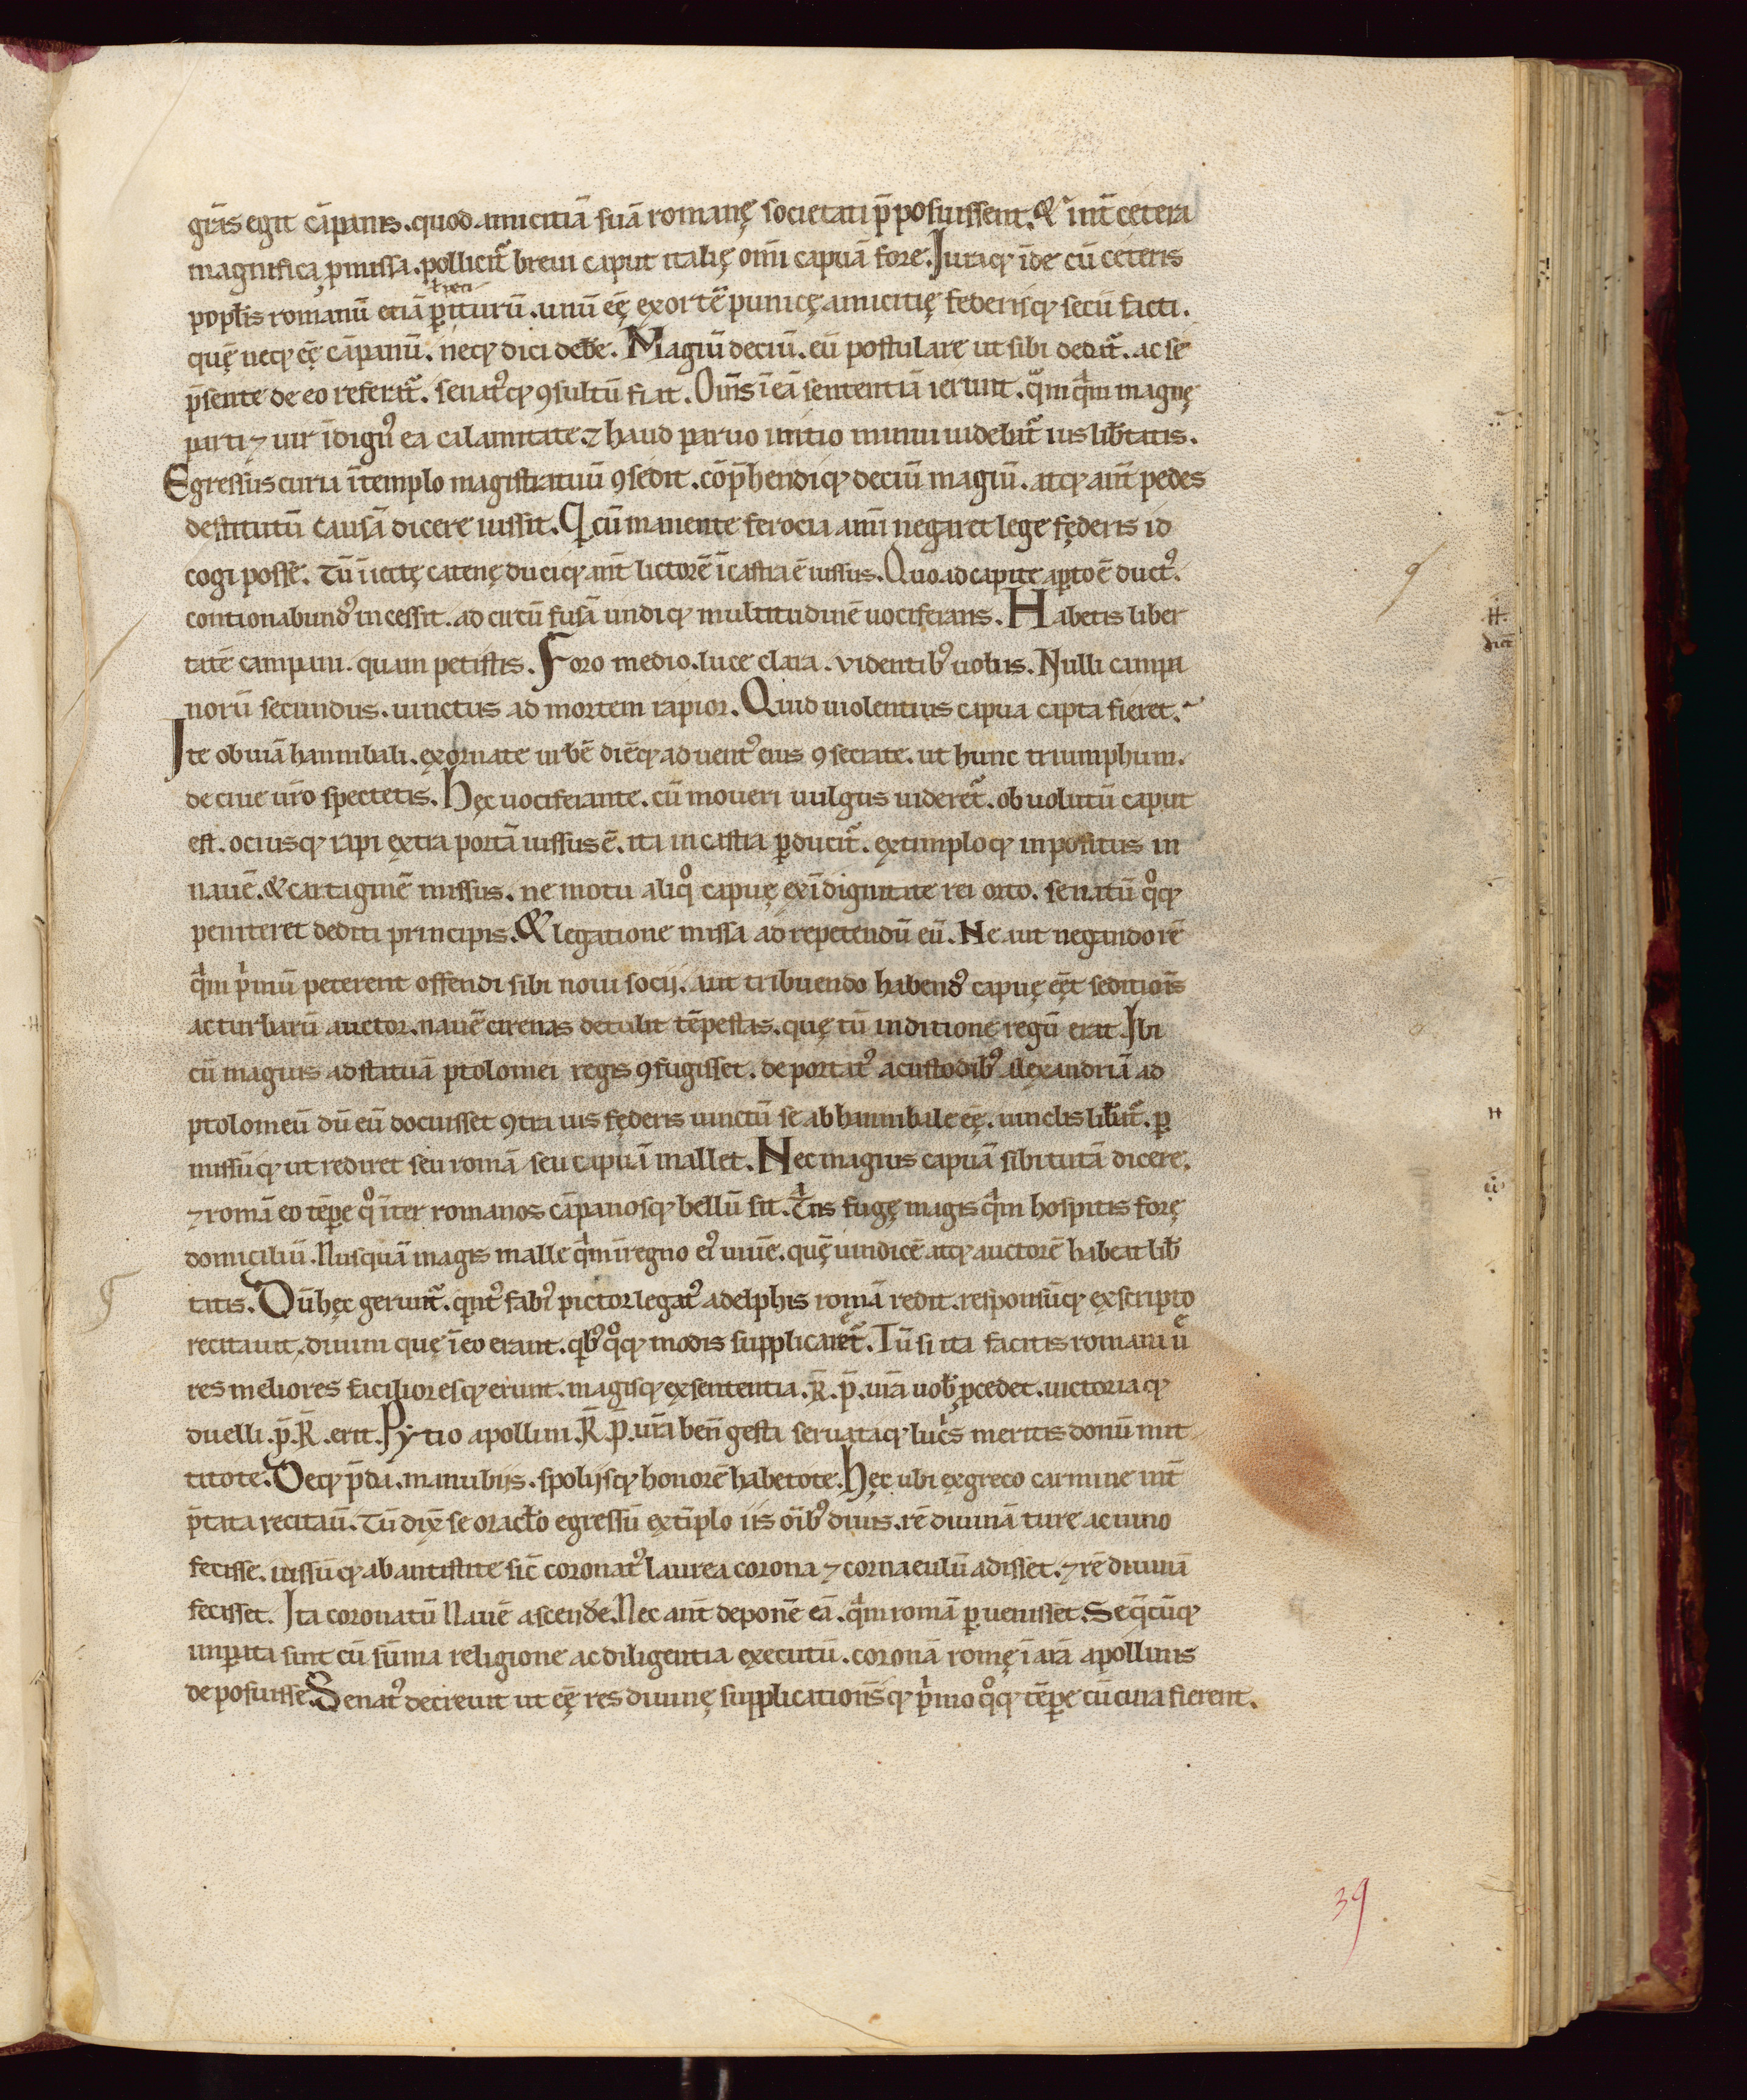 gr̄as egit cāpanis. quod amicitiā suā romanę societati p̄posuissent. & int̄ cetera
magnifica ꝓmissa. pollicit᷑ breui caput italię om̄i capuā fore. Iuraq; īde cū ceteris
popł̄is romanū etiā ꝑiturū. unū eę̄ exortę̄ punicę amicitię federisq; secū facti.
quę̄ neq; eę̄ cāpanū. neq; dici deb̄e. Magiū deciū. eū postulare ut sibi dedat᷑. ac se
p̄sente de eo referat᷑. senatꝰq; ꝯsultū fiat. Om̄s ī eā sententiā ierunt. qͣmqͣm magnę
parti ⁊ uir īdignꝰ ea calamitate. ⁊ haud paruo initio minui uidebat᷑ ius lib̄tatis.
Egressus curia ī templo magistratuū ꝯsedit. cōp̄hendiq; deciū magiū. atq; ant̄ pedes
destitutū causā dicere iussit. Qi cū manente ferocia anīi negaret lege fęderis id
cogi posse. Tū īiectę catenę duciq; ant̄ lictorē ī castra ē iussus. Quoad capite aꝑto ē ductꝰ.
contionabundꝰ incessit. ad circū fusā undiq; multitudinē uociferans. Habetis liber
tatē campani. quam petistis. Foro medio. luce clara. videntibꝰ uobis. Nulli campa
norū secundus. uinctus ad mortem rapior. Quid uiolentius capua capta fieret.
Ite obuiā hannibali. exornate urbē diēq; aduentꝰ eius ꝯsecrate. ut hunc triumphum.
de ciue ur̄o spectetis. Hęc uociferante. cū moueri uulgus uideret᷑. obuolutū caput
est. ociusq; rapi extra portā iussus ē. ita in castra ꝑducit᷑. extimploq; inpositus in
nauē. & cartaginē missus. ne motu aliqͦ capuę ex īdignitate rei orto. senatū qͦq;
peniteret dediti principis. & legatione missa ad repetendū eū. Ne aut negando rē
qͣm pͥmū peterent offendi sibi noui socij. aut tribuendo habendꝰ capuę eēt seditiōis
ac turbarū auctor. nauē cirenas detulit tēpestas. quę tū in ditione regū erat. Ibi
cū magius ad statuā ptolomei regis ꝯfugisset. deportatꝰ a custodibꝰ alexandriā ad
ptolomeū dū eū docuisset ꝯtra ius fęderis uinctū se ab hannibale eę̄. uinclis lib̄at᷑. ꝑ
missūq; ut rediret seu romā seu capuā mallet. Nec magius capuā sibi tutā dicere.
⁊ romā eo tēꝑe qͦ īter romanos cāpanosq; bellū sit. tͣ̄s fugę magis qͣm hospitis forę
domiciliū. Nusquā magis malle qͣm ī regno eiꝰ uiuē. quę̄ uindicē atq; auctorē habeat lib̄
tatis. Dū hęc gerunt᷑. qntꝰ fabiꝰ pictor legatꝰ a delphis romā redit. responsūq; ex scripto
recitauit. diuum quę ī eo erant. qͥbꝰ qͦq; modis supplicaret᷑. Tū si ita facitis romani ur̄ę
res meliores facilioresq; erunt. magisq; ex sententia. R̄. p̄. ur̄a uob̄ ꝓcedet. uictoriaq;
duelli. p̄. R̄. erit. Pytio apollini. R̄. P̄. ur̄a ben̄ gesta seruataq; lucͥs meritis donū mit
titote. Deq; p̄da. manubijs. spolijsq; honorē habetote. Hęc ubi ex greco carmine int̄
p̄tata recitauī. Tū dix̄ se oracl̄o egressū extīplo iis oībꝰ diuis. rē diuinā ture ac uino
fecisse. iussūq; ab antistite sic̄ coronatꝰ laurea corona ⁊ cornaculū adisset. ⁊ rē diuinā
fecisset. Ita coronatū Nauē ascend̄e. Nec ant̄ deponē eā. qͣm romā ꝑuenisset. Se q̄cūq;
inꝑata sint cū sūma religione ac diligentia executū. coronā romę ī arā apollinis
deposuisse. Senatꝰ decreuit ut eę res diuinę supplicationēsq; pͥmo qͦq; tēꝑe cū cura fierent.
39